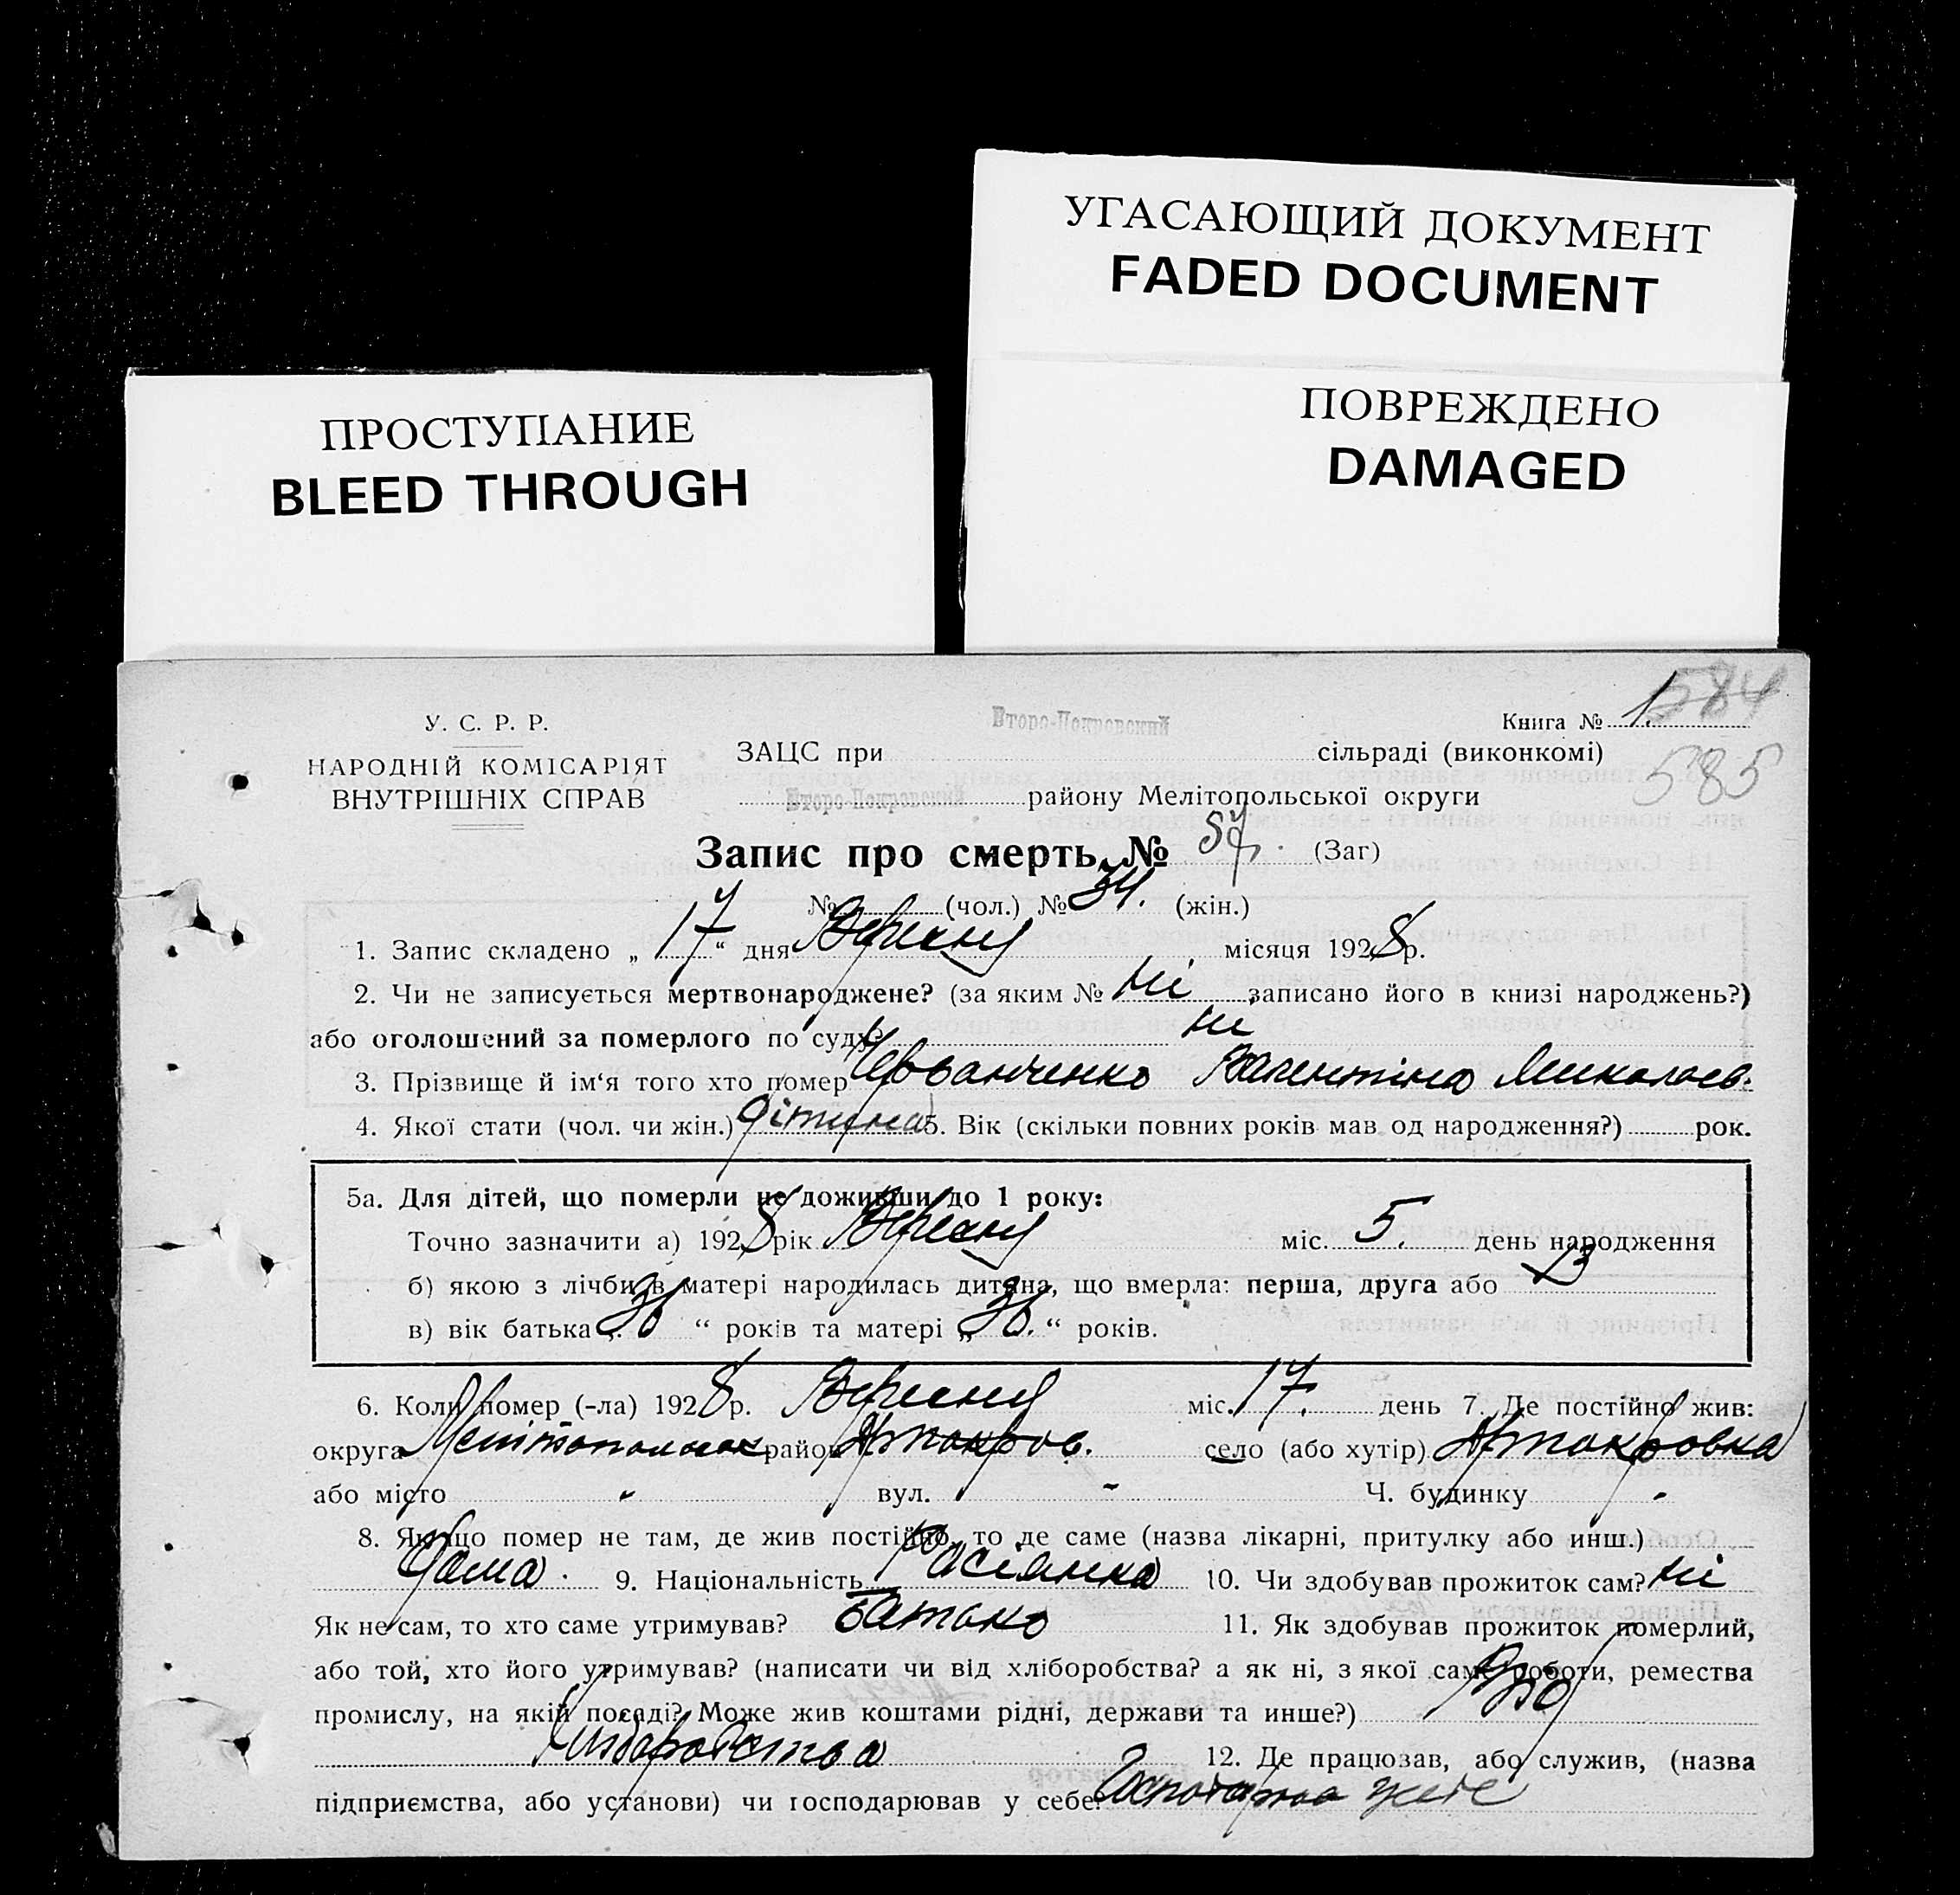 УГАСАЮЩИЙ ДОКУМЕНТ
FADED DOCUMENT
ПОВРЕЖДЕНО
DAMAGED
ПРОСТУПАНИЕ
BLEED THROUGH
У. С. Р. Р.
НАРОДНІЙ КОМІСАРІЯТ
ВНУТРІШНІХ СПРАВ
Книга № 1. 584
585
Второ-Покровский
ЗАЦС при сільраді (виконкомі)
Второ-Покровский району Мелітопольської округи
Запис про смерть, № 57. (Заг)
№ (чол.) № 34. (жін.)
1. Запис складено „ 17 “ дня Вересня місяця 1928 р.
2. Чи не записується мертвонароджене? (за яким № ні записано його в книзі народжень?)
або оголошений за померлого по суду? ні
3. Прізвище й ім‘я того хто помер Валентіна Миколаєв.
4. Якої стати (чол. чи жін.) дітина 5. Вік (скільки повних років мав од народження?) рок.
5а. Для дітей, що померли не доживши до 1 року:
Точно зазначити а) 1928 рік Вересня міс. 5. день народження
б) якою з лічби в матері народилась дитина, що вмерла: перша, друга або
в) вік батька „ 36 “ років та матері „ 36. “ років.
6. Коли помер (-ла) 1928 р. Вересня міс. 17. день 7. Де постійно жив:
округа район село (або хутір)
або місто - вул. - Ч. будинку -
8. Якщо помер не там, де жив постійно, то де саме (назва лікарні, притулку або инш.)
дома. 9. Національність Расіянка 10. Чи здобував прожиток сам? ні
Як не сам, то хто саме утримував? батько 11. Як здобував прожиток померлий,
або той, хто його утримував? (написати чи від хліборобства? а як ні, з якої саме роботи, ремества
промислу, на якій посаді? Може жив коштами рідні, держави та инше?) Від
хліборобства 12. Де працював, або служив, (назва
підприємства, або установи) чи господарював у себе?